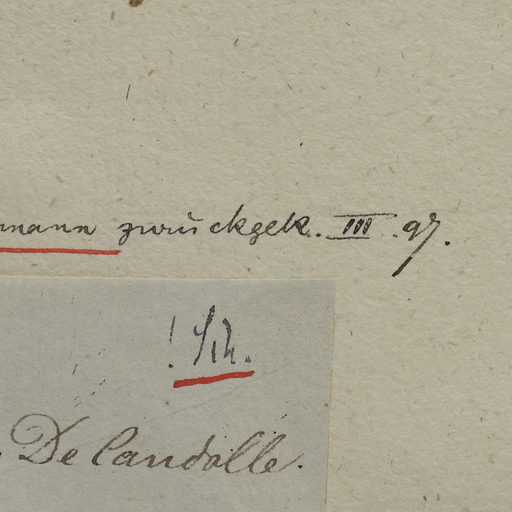 mann zurückgek. III. 97.
! Sch.
De Candolle.